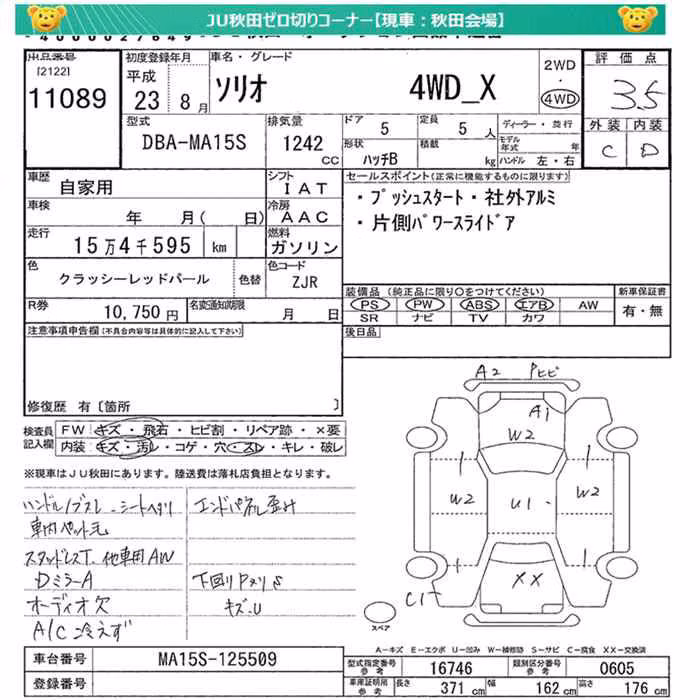 JU秋田ゼロ切りコーナー【現車：秋田会場】
出品番号
[2122]
11089
初度登録年月
平成
23 8月
車名・グレード
ソリオ 4WD_X
2WD
・
4WD
評価点
3.5
外装 内装
C D
型式
DBA-MA15S
排気量
1242
CC
ドア
5
定員
5 人
形状
ハッチB
積載
kg
ディーラー・並行
モデル年式 年
ハンドル 左・右
車歴
自家用
シフト
IAT
車検
年 月( 日)
冷房
AAC
走行
15万4千595 km
燃料
ガソリン
色
クラッシーレッドパール
色替
色コード
ZJR
R券
10,750円
名変通知期限
月 日
セールスポイント(正常に機能するものに限ります)
・プッシュスタート・社外アルミ
・片側パワースライドア
装備品 (純正品に限り○をつけてください)
PS PW ABS エアB AW
SR ナビ TV カワ
新車保証書
有・無
後日品
注意事項申告欄(不具合内容等は具体的に記入して下さい)
修復歴 有〔箇所 〕
検査員
記入欄
FW キズ・飛石・ヒビ割・リペア跡・×要
内装 キズ・汚レ・コゲ・穴・スレ・キレ・破レ
※現車はJU秋田にあります。陸送費は落札店負担となります。
ハンドル/ブスレ・シートヘタリ
車内ペット毛
スタッドレスT.他車用AW
DミラーA
オーディオ欠
A/C冷えず
エンドパネル歪み
下回りPヌリ
キズ・U
A2 Pヒビ
A1
W2
W2 U1 W2
XX
C1
スペア
A−キズ E−エクボ U−凹み W−補修跡 S−サビ C−腐食 XX−交換済
車台番号
MA15S-125509
登録番号
型式指定番号
参考
16746
類別区分番号
参考
0605
車庫証明用
参考
長さ 371cm 幅 162cm 高さ 176cm